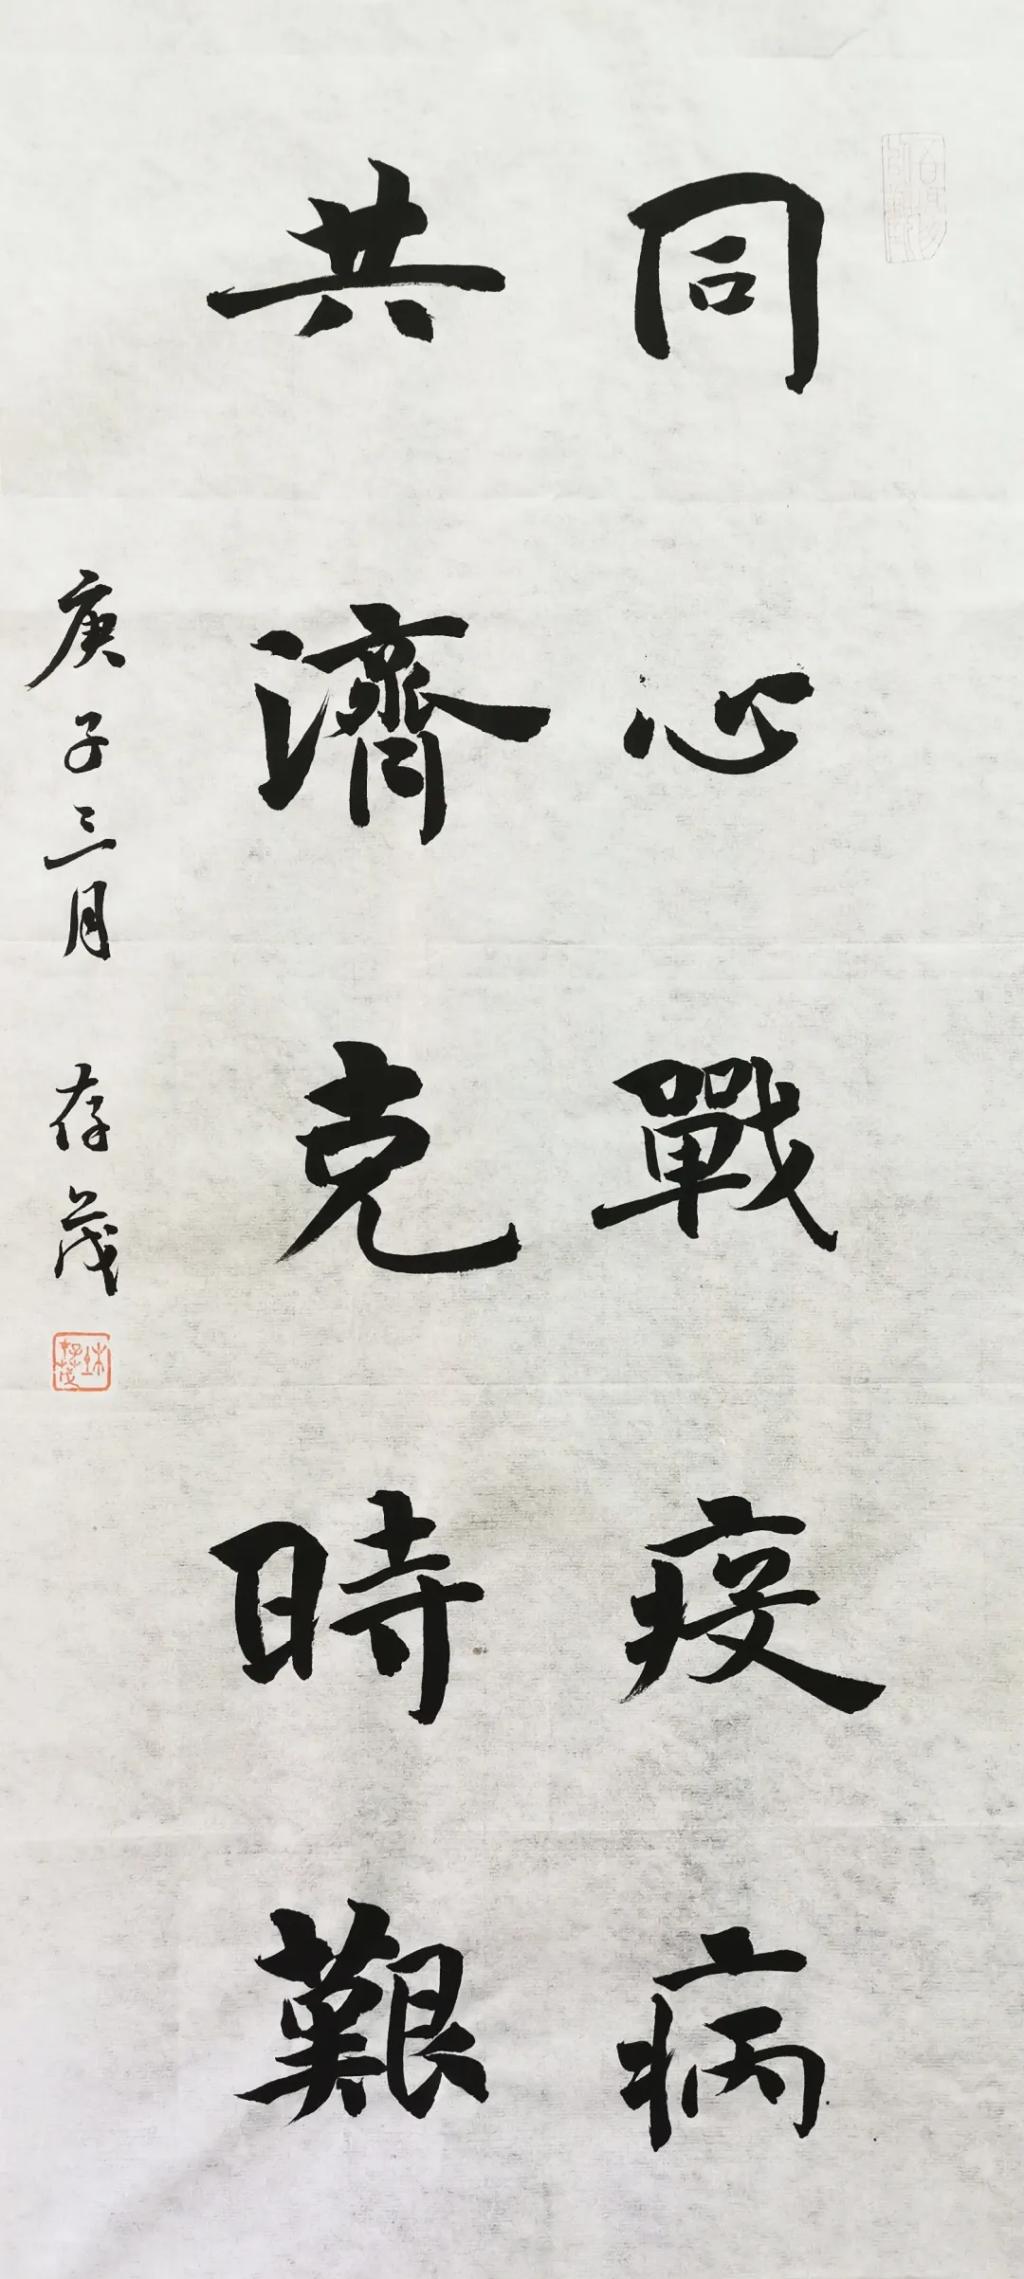 同心戰疫病
共濟克時艱
庚子三月 存茂